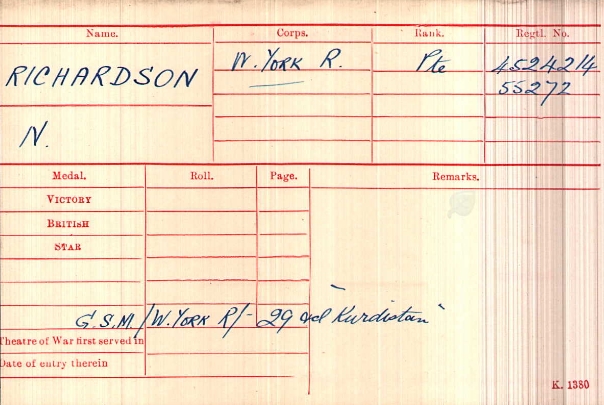 Name. Corps. Rank. Regtl. No.
RICHARDSON W. YORK R. Pte 4524214
55272
N.
Medal. Roll. Page. Remarks.
VICTORY
BRITISH
STAR
G.S.M. / W. YORK R/- 29 "Kurdistan"
Theatre of War first served in
Date of entry therein
K. 1380